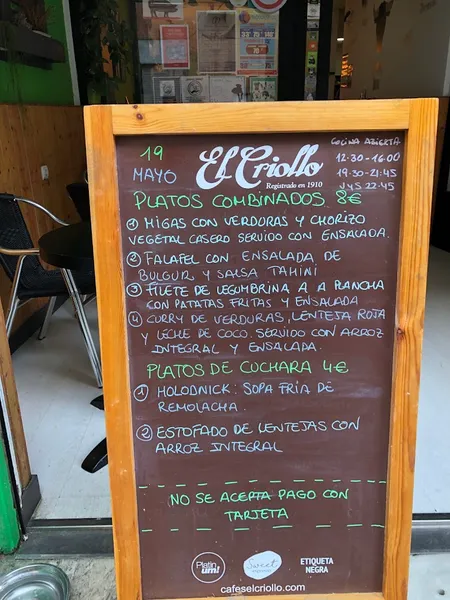 19
MAYO
El Criollo
Registrado en 1910
COCINA ABIERTA
12:30-16:00
19:30-21:45
V y S 22:45
PLATOS COMBINADOS 8€
1 MIGAS CON VERDURAS Y CHORIZO
VEGETAL CASERO SERVIDO CON ENSALADA.
2 FALAFEL CON ENSALADA DE
BULGUR Y SALSA TAHINI
3 FILETE DE LEGUMBRINA A A PLANCHA
CON PATATAS FRITAS Y ENSALADA
4 CURRY DE VERDURAS, LENTEJA ROJA
Y LECHE DE COCO. SERVIDO CON ARROZ
INTEGRAL Y ENSALADA.
PLATOS DE CUCHARA 4€
1 HOLODNICK: SOPA FRÍA DE
REMOLACHA.
2 ESTOFADO DE LENTEJAS CON
ARROZ INTEGRAL
NO SE ACEPTA PAGO CON
TARJETA
Platin
um!
Sweet
ETIQUETA
NEGRA
cafeselcriollo.com